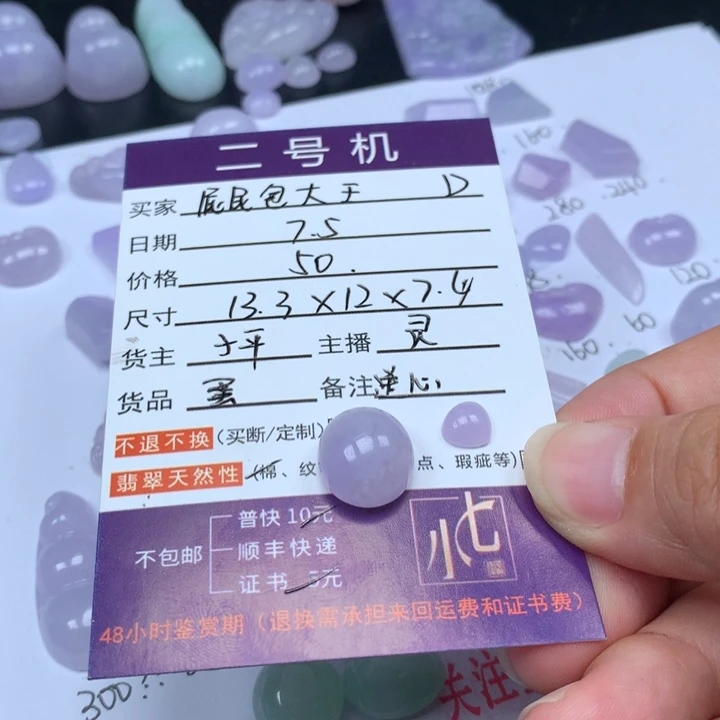 二号机
买家 屁民包大于 D
日期 7.5
价格 50.
尺寸 13.3×12×7.4
货主 子平 主播 灵
货品 蛋 备注 心
不退不换(买断/定制)
翡翠天然性(棉、纹 点、瑕疵等)
普快10元
不包邮 顺丰快递
证书 5元
小七
48小时鉴赏期(退换需承担来回运费和证书费)
160
280 240
120
160 60
300??
关注